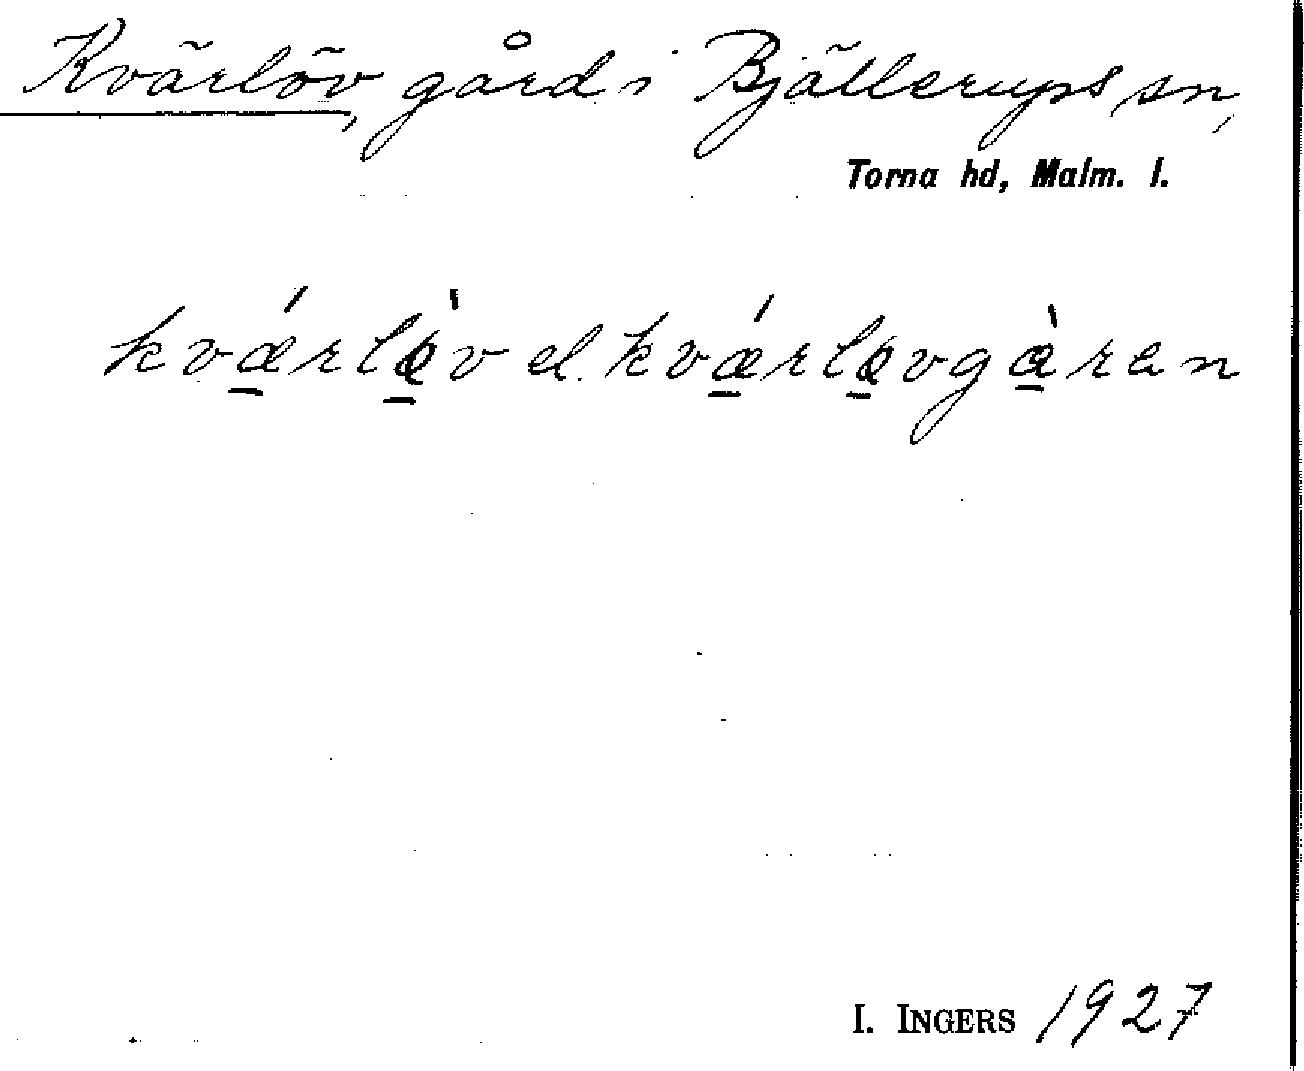 Kvärlöv, gård i Bjällerups sn,
Torna hd, Malm. l.
kvǽ̱rlø̱̀v el. kvǽ̱rlø̱vgà̱ren
I. INGERS 1927